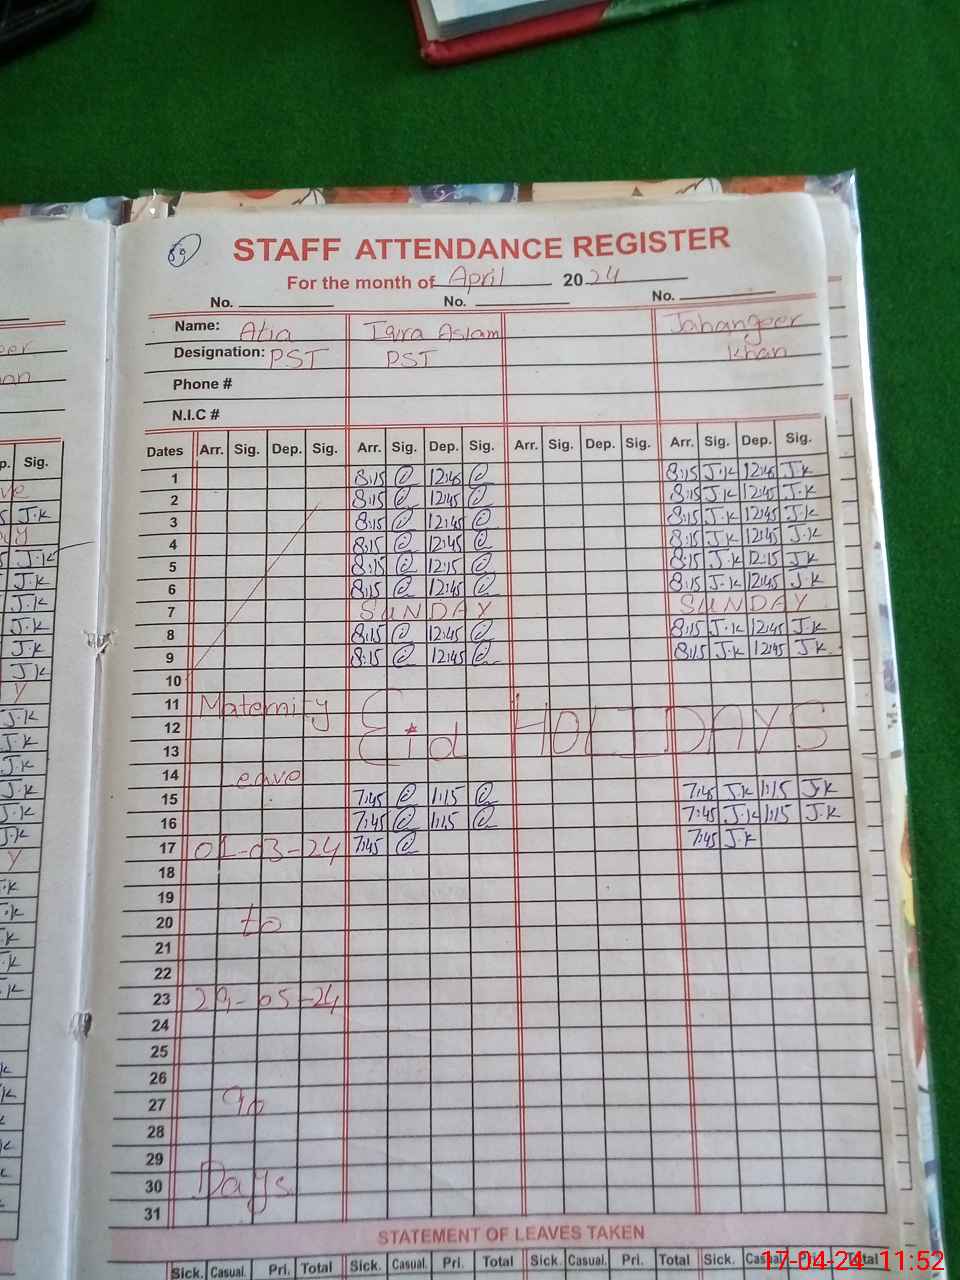 89
STAFF ATTENDANCE REGISTER
For the month of April 2024
No. No. No.
Name: Atia Iqra Aslam Jahangeer
Designation: PST PST Khan
Phone #
N.I.C #
Dates Arr. Sig. Dep. Sig. Arr. Sig. Dep. Sig. Arr. Sig. Dep. Sig. Arr. Sig. Dep. Sig.
1 8:15 12:45 8:15 J.K 12:45 JK
2 8:15 12:45 8:15 JK 12:45 JK
3 8:15 12:45 8:15 JK 12:45 JK
4 8:15 12:45 8:15 J.K 12:45 J.K
5 8:15 12:15 8:15 J.K 12:15 JK
6 8:15 12:45 8:15 J.K 12:45 JK
7 SUNDAY SUNDAY
8 8:15 12:45 8:15 J.K 12:45 J.K
9 8:15 12:45 8:15 J.K 12:45 J.K
10
11 Maternity Eid HOLIDAYS
12
13
14 eave
15 7:45 1:15 7:45 J.K 1:15 J.K
16 7:45 1:15 7:45 J.K 1:15 J.K
17 01-03-24 7:45 7:45 J.K
18
19
20 to
21
22
23 29-05-24
24
25
26
27 90
28
29
30 Days
31
STATEMENT OF LEAVES TAKEN
Sick. Casual. Pri. Total Sick. Casual. Pri. Total Sick. Casual. Pri. Total Sick. Casual. Pri. Total
17-04-24 11:52